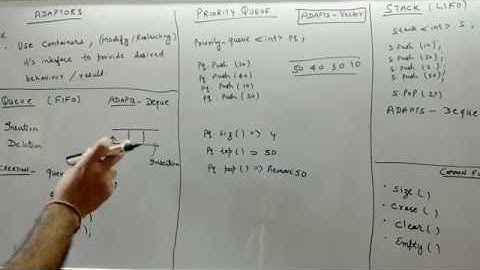 ADAPTORS
Use Containers, (modify/Restricting)
it's interface to provide desired
behaviour / result.
Queue (FIFO)
ADAPTS - Deque
Insertion
Deletion
Insertion
CREATION -
PRIORITY QUEUE
ADAPTS - Vector
Priority-queue <int> Pq,
Pq. Push (30)
Pq. Push (40)
Pq. Push (10)
Pq. Push (50)
50 40 30 10
Pq. size () => 4
Pq. top () => 50
Pq. pop () => Remove 50
STACK (LIFO)
Stack <int> S ;
S. Push (10);
S. Push (30);
S. Push (50);
ADAPTS - Deque
Size ( )
Erase ( )
Clear ( )
Empty ( )